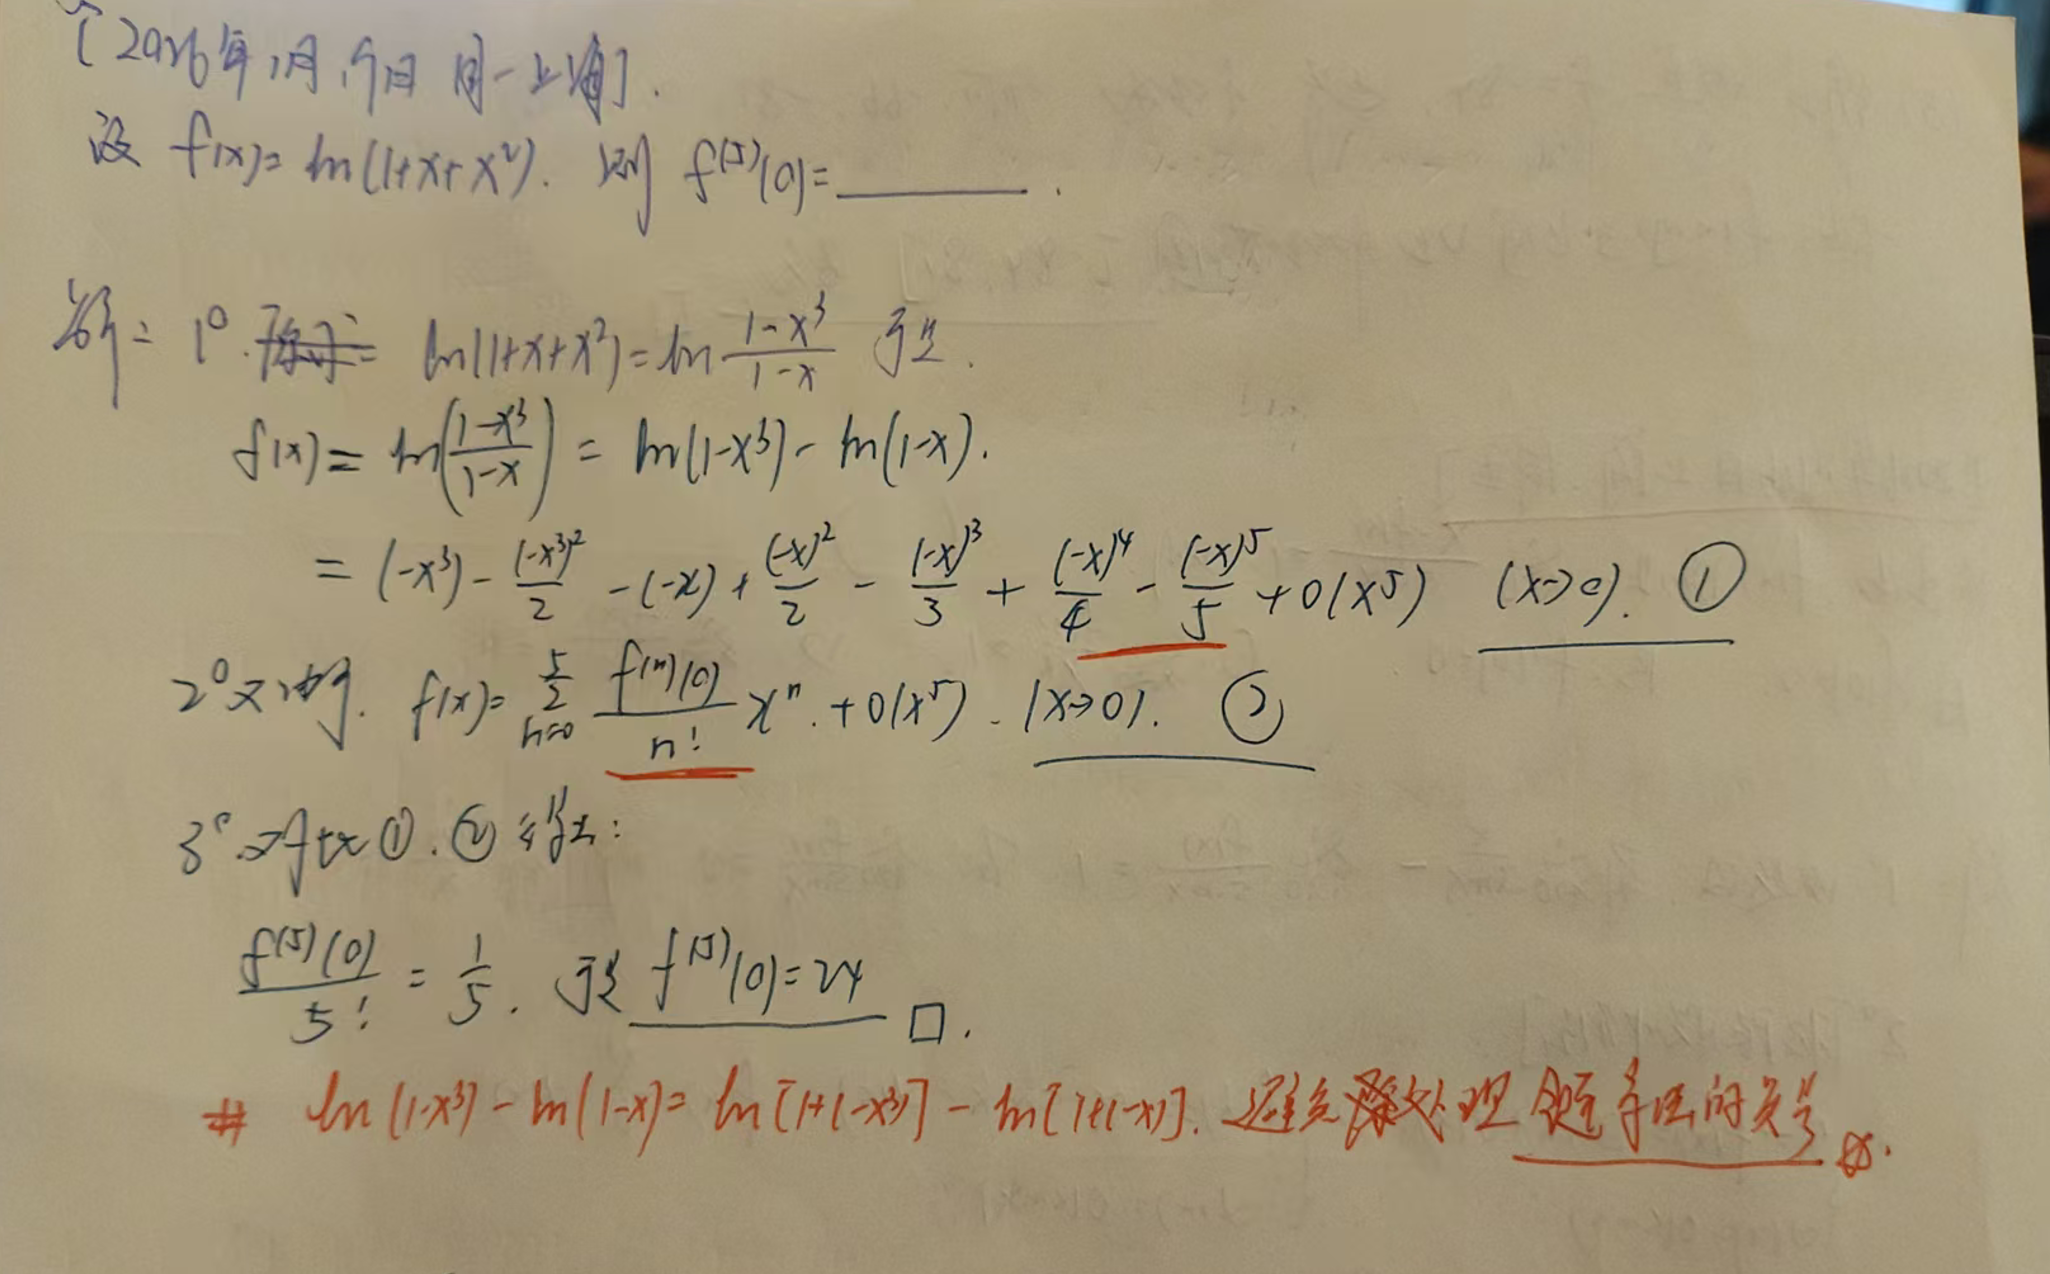 [2026年1月19日 周一 上海].
设 f(x)=ln(1+x+x²). 则 f⁽⁵⁾(0)=________.
解: 1°. ln(1+x+x²)=ln (1-x³)/(1-x) 于是.
f(x)= ln((1-x³)/(1-x)) = ln(1-x³)-ln(1-x).
= (-x³) - (-x³)²/2 -(-x) + (-x)²/2 - (-x)³/3 + (-x)⁴/4 - (-x)⁵/5 +o(x⁵) (x→0). ①
2° 又 f(x)= ∑_{n=0}^{5} f⁽ⁿ⁾(0)/n! xⁿ. +o(x⁵). (x→0). ②
3°. 对比①.②得:
f⁽⁵⁾(0)/5! = 1/5. 于是 f⁽⁵⁾(0)=24 □.
# ln(1-x³)-ln(1-x)= ln[1+(-x³)] - ln[1+(-x)]. 避免处理 的负号